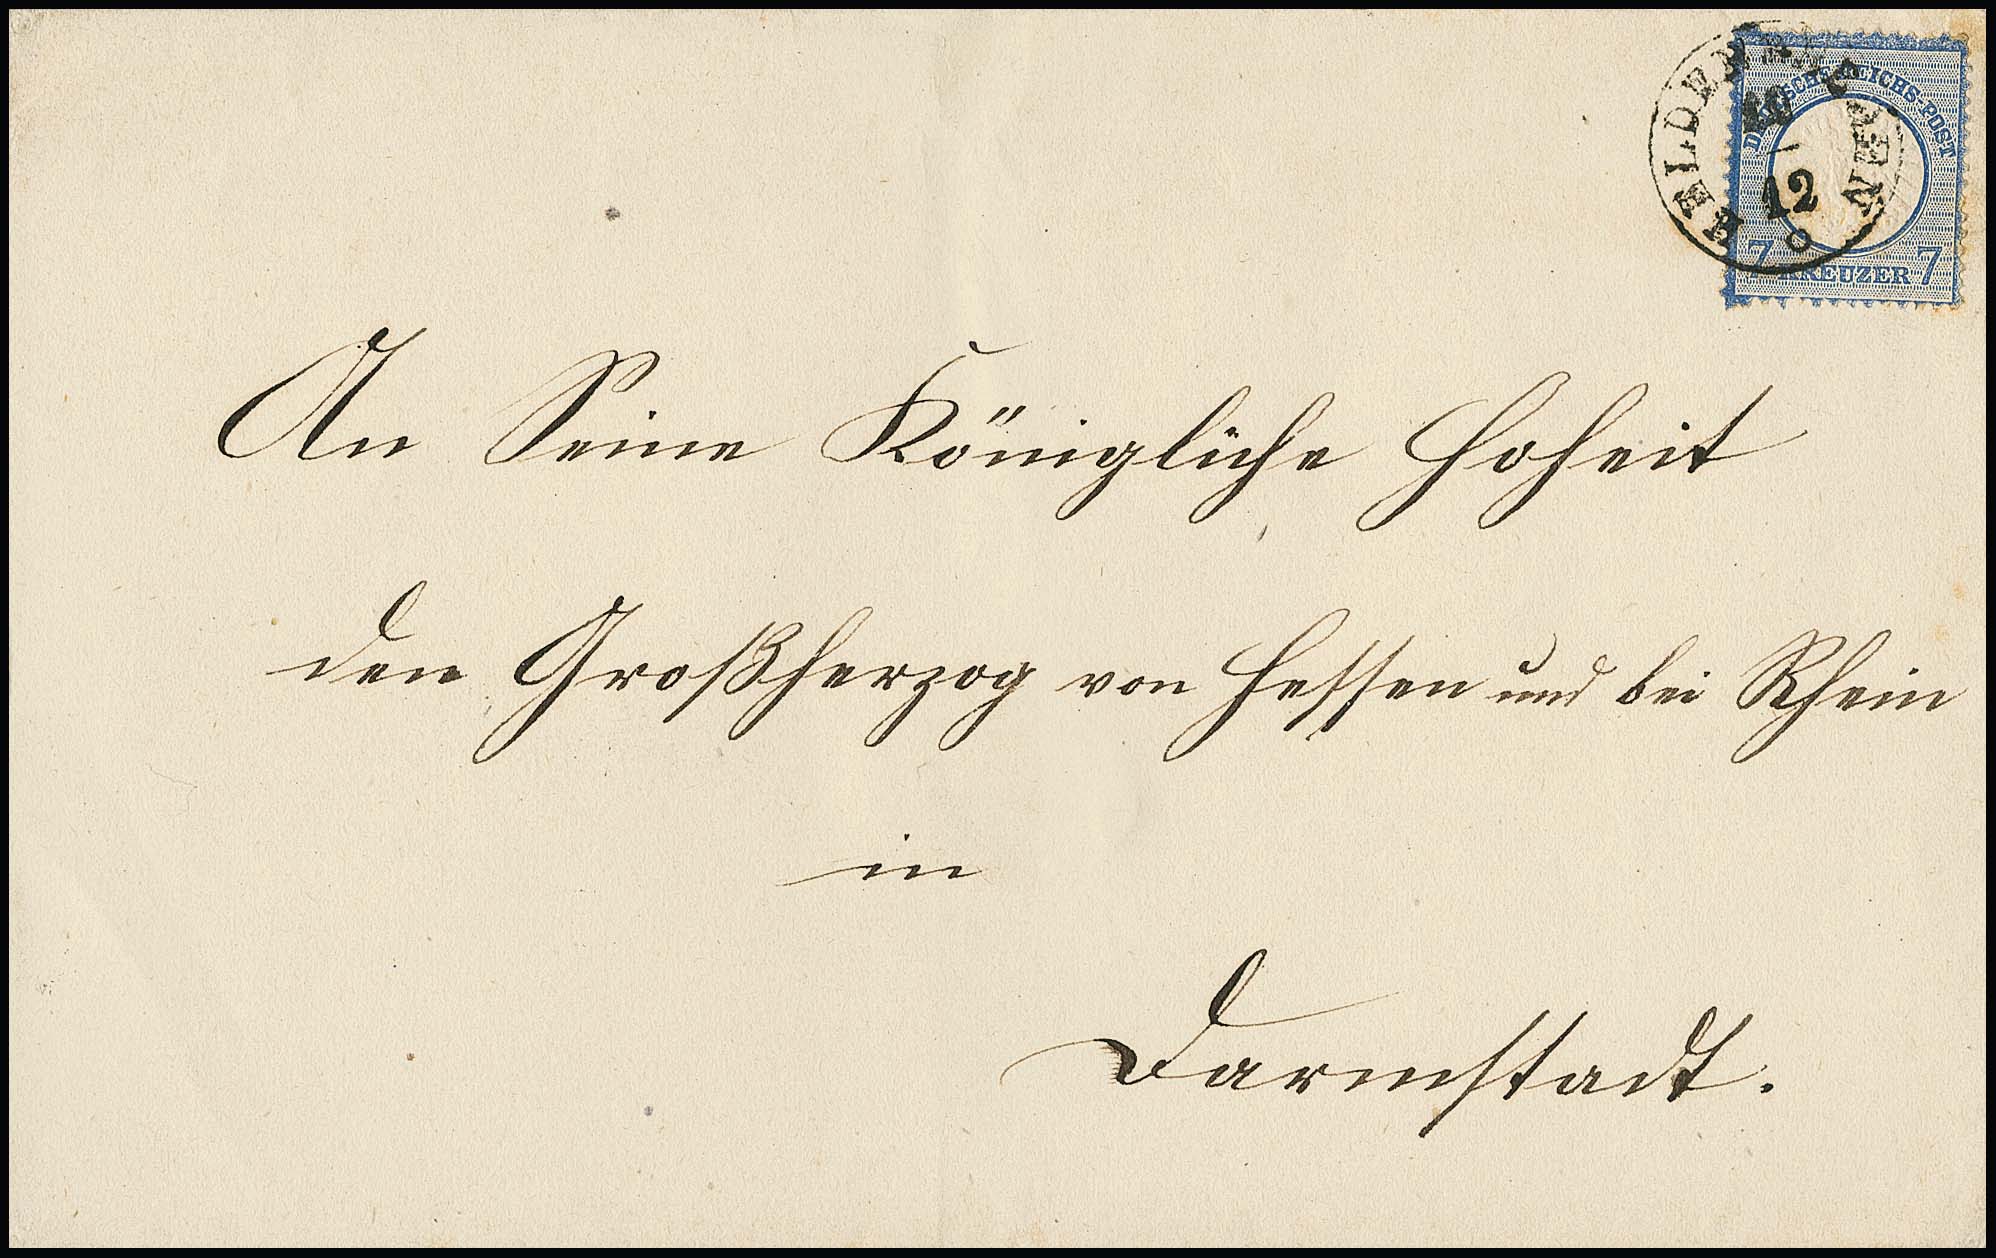 HEIDENHEIM
10
12
DEUTSCHE REICHS-POST
7 KREUZER 7
An Seine Königliche Hoheit
den Großherzog von Hessen und bei Rhein
in
Darmstadt.